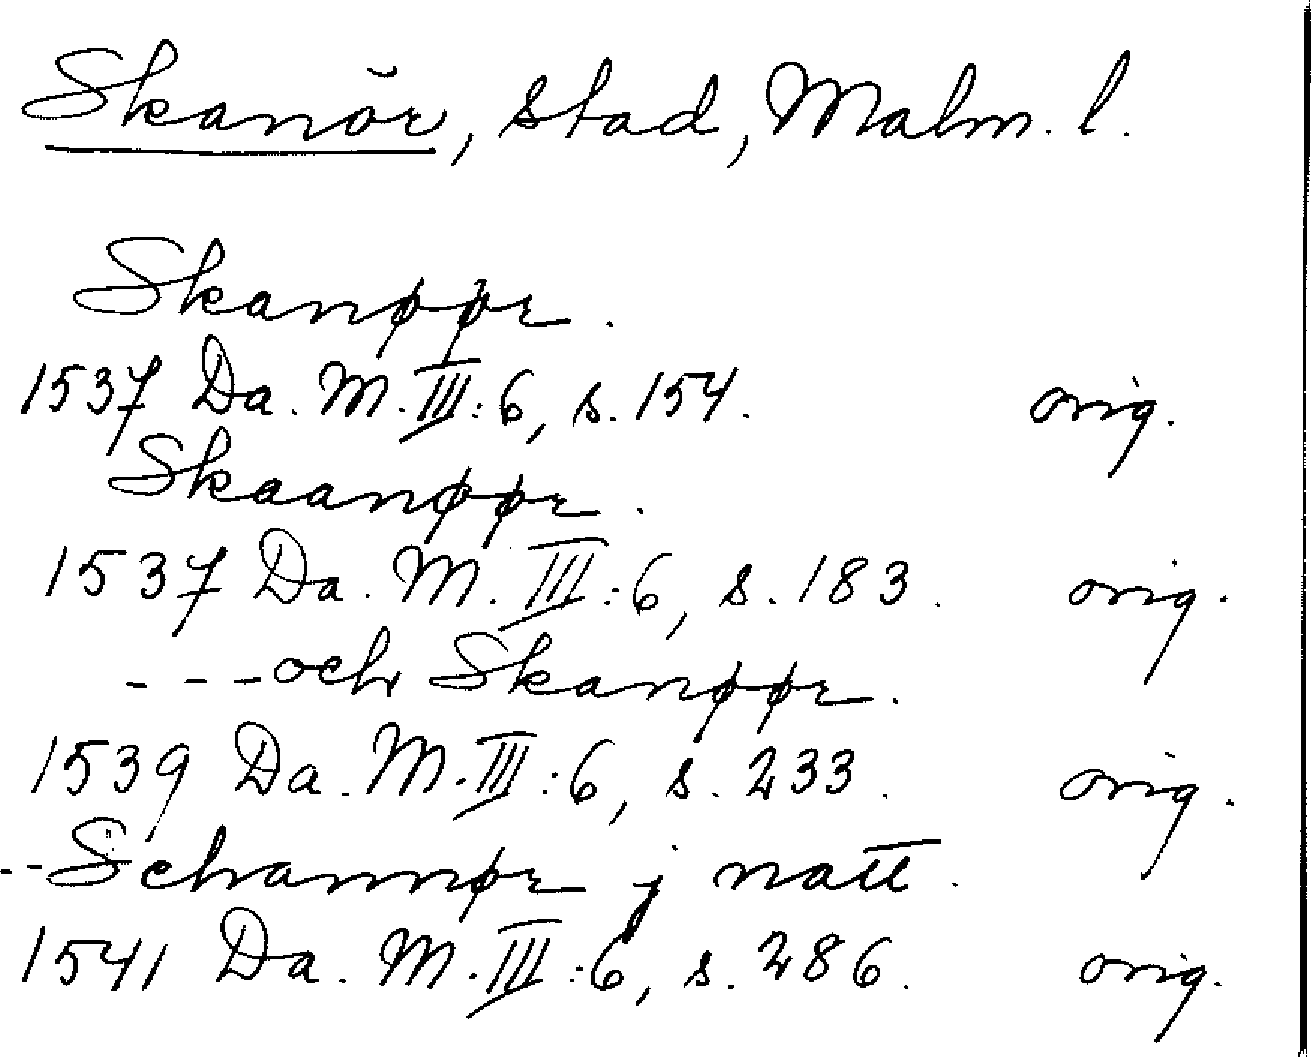 Skanör, stad, Malm. l.
Skanøør.
1537 Da. M. III:6, s. 154. orig.
Skaanøør.
1537 Da. M. III:6, s. 183. orig.
---och Skanøør.
1539 Da. M. III:6, s. 233. orig.
--Schannør j natt.
1541 Da. M. III:6, s. 286. orig.